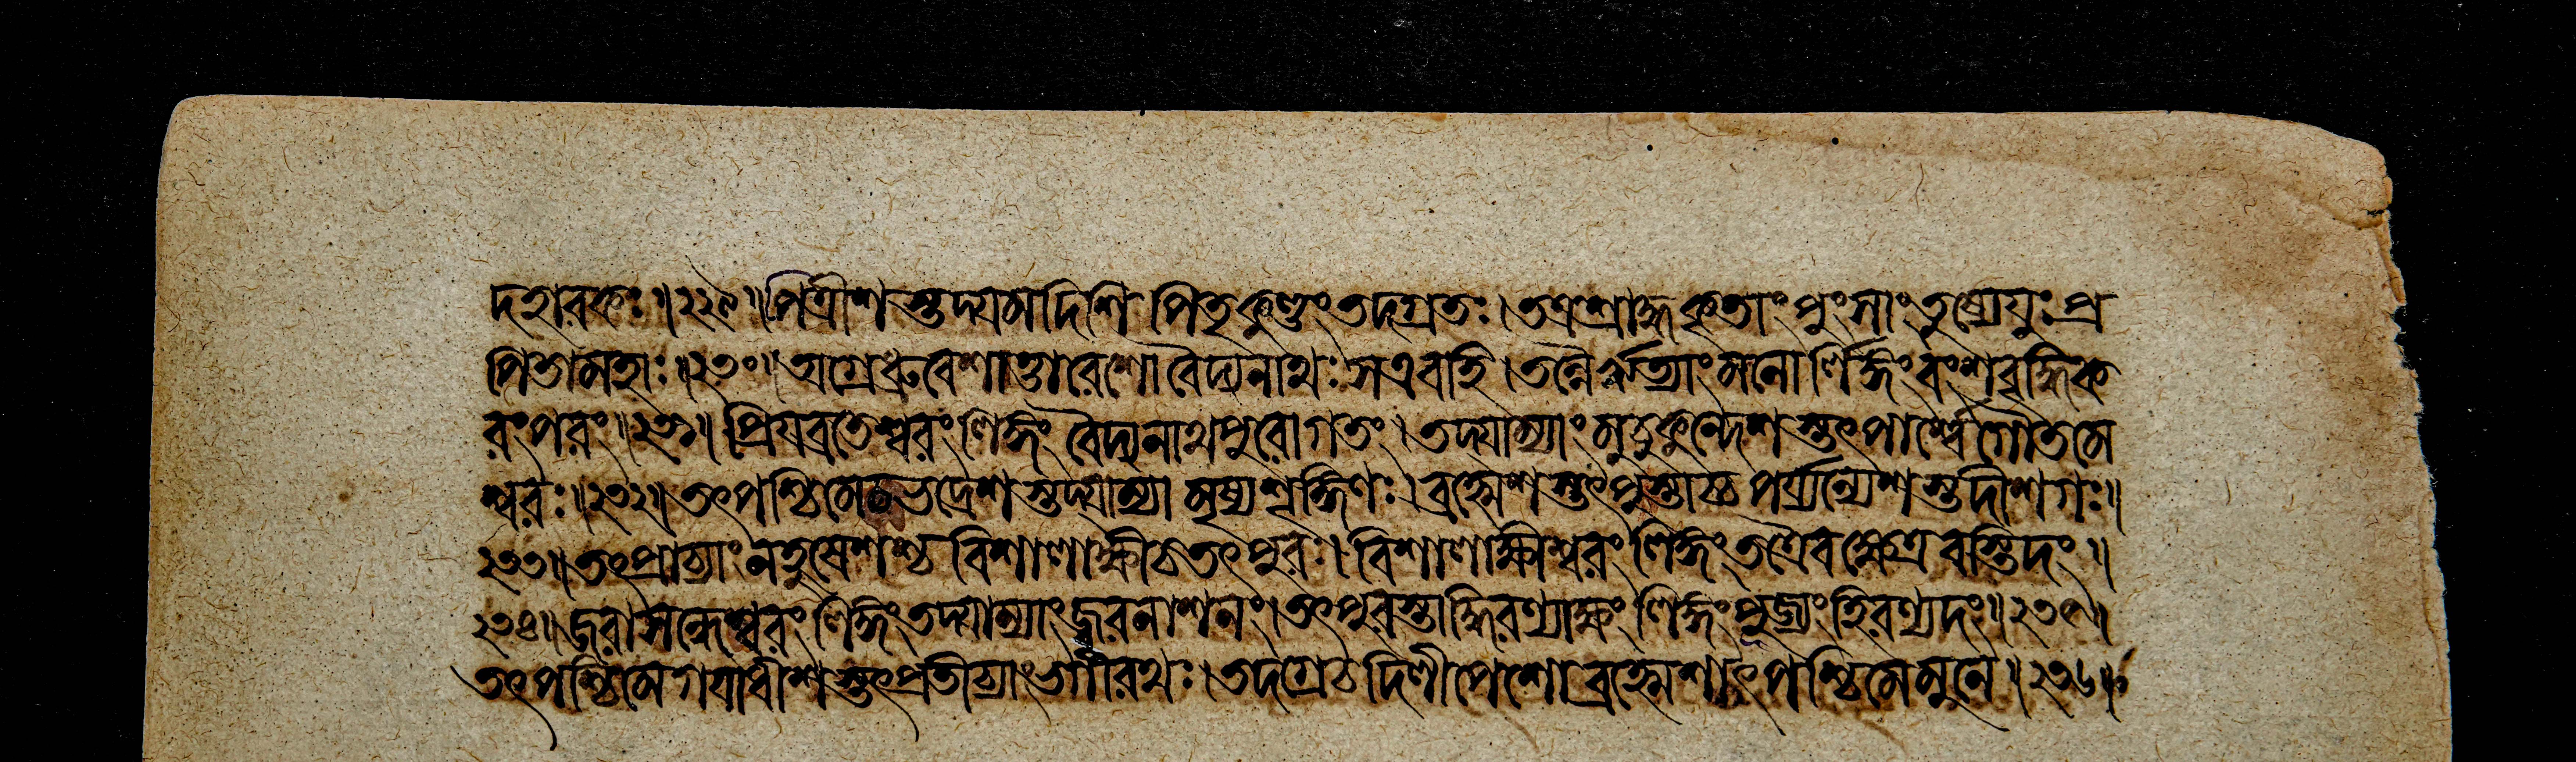 দহারকঃ॥২২৯॥পিত্রীশস্তদ্যমদিশি পিতৃকুণ্ডং তদগ্রতঃ।তত্রশ্রাদ্ধকৃতাং পুংসাং তুষ্যেয়ুঃ প্র
পিতামহাঃ॥২৩০॥অগ্রেধ্রুবেশাত্তারেশো বৈদ্যনাথঃ সএবহি।তন্নৈরৃত্যাং মনোর্লিঙ্গং বংশবৃদ্ধিক
রংপরং॥২৩১॥প্রিয়ব্রতেশ্বরং লিঙ্গং বৈদ্যনাথপুরোগতং।তদ্যাম্যাং মুচুকুন্দেশস্তৎপার্শ্বে গৌতমে
শ্বরঃ॥২৩২॥তৎপশ্চিমেচভদ্রেশস্তদ্যাম্যামৃষ্যশৃঙ্গিণঃ।ব্রহ্মেশস্তৎপুরস্তাচ্চ পর্য্যন্যেশস্তদীশগঃ॥
২৩৩॥তৎপ্রাচ্যাং নহুষেশশ্চ বিশালাক্ষীচতৎপুরঃ।বিশালাক্ষীশ্বরং লিঙ্গং তত্রৈবক্ষেত্রবস্তিদং॥
২৩৪॥জরাসন্ধেশ্বরং লিঙ্গং তদ্যাম্যাং জ্বরনাশনং।তৎপুরস্তাদ্ধিরণ্যাক্ষং লিঙ্গং পূজ্যং হিরণ্যদং॥২৩৫॥
তৎপশ্চিমে গয়াধীশস্তৎপ্রতীচ্যাং ভগীরথঃ।তদগ্রেচ দিলীপেশো ব্রহ্মেশাৎপশ্চিমেমুনে॥২৩৬॥